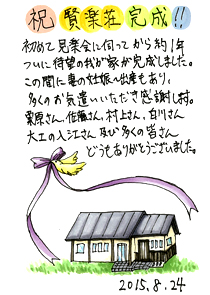 祝 賢楽荘 完成!!
初めて見楽会に伺ってから約1年
ついに待望の我が家が完成しました。
この間に妻の妊娠〜出産もあり、
多くのお気遣いいただき感謝します。
栗原さん、佐藤さん、村上さん、白川さん
大工の入江さん 及び 多くの皆さん
どうもありがとうございました。
2015.8.24